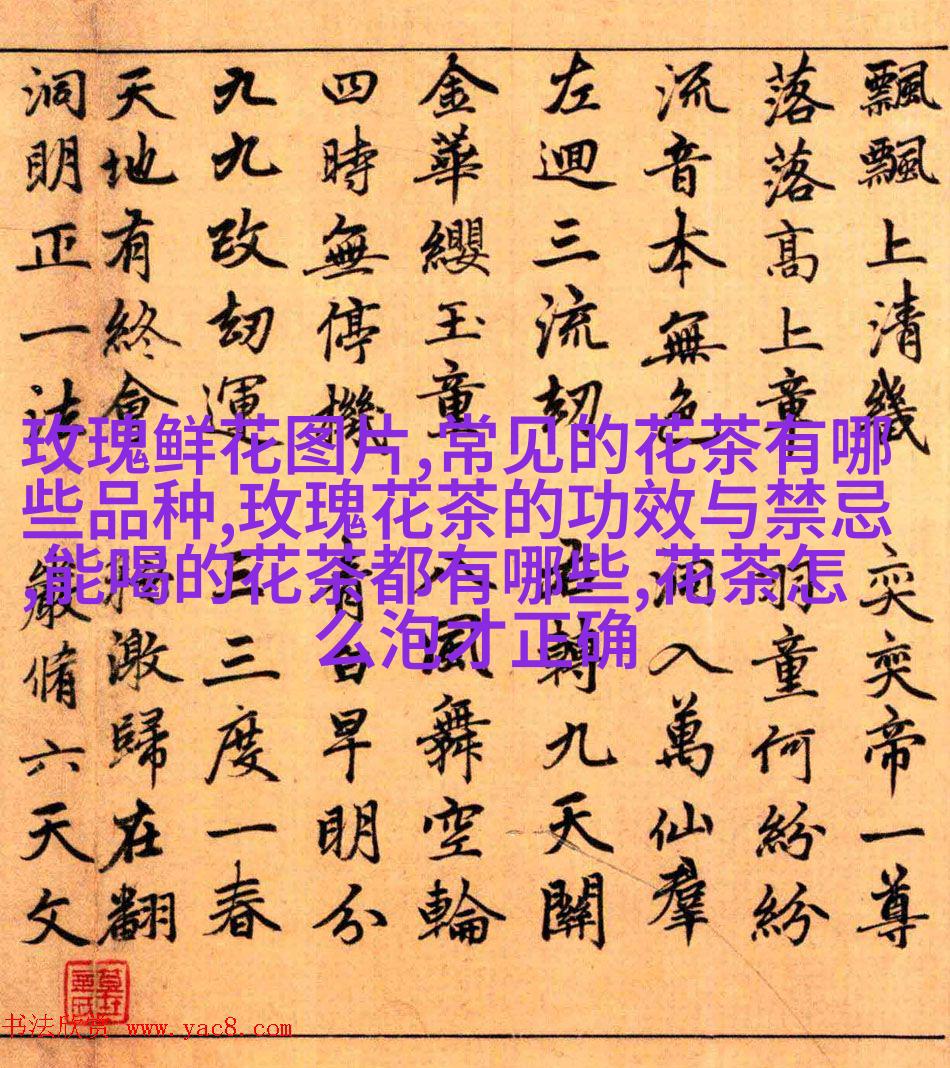 飄飄上清幾 奕奕帝一尊
落落高上童 羽童何紛紛
流音本無色 洞入萬仙羣
左迴三流刼 匝轉九天關
金華纓玉童 八風舞空輪
四時無停機 青台早明分
九九改刼運 三三度一春
天地有終會 激歸在翻
洞明正一法 嚴脩六天文
玫瑰鲜花图片,常见的花茶有哪
些品种,玫瑰花茶的功效与禁忌
,能喝的花茶都有哪些,花茶怎
么泡才正确
书法欣赏 www.yac8.com